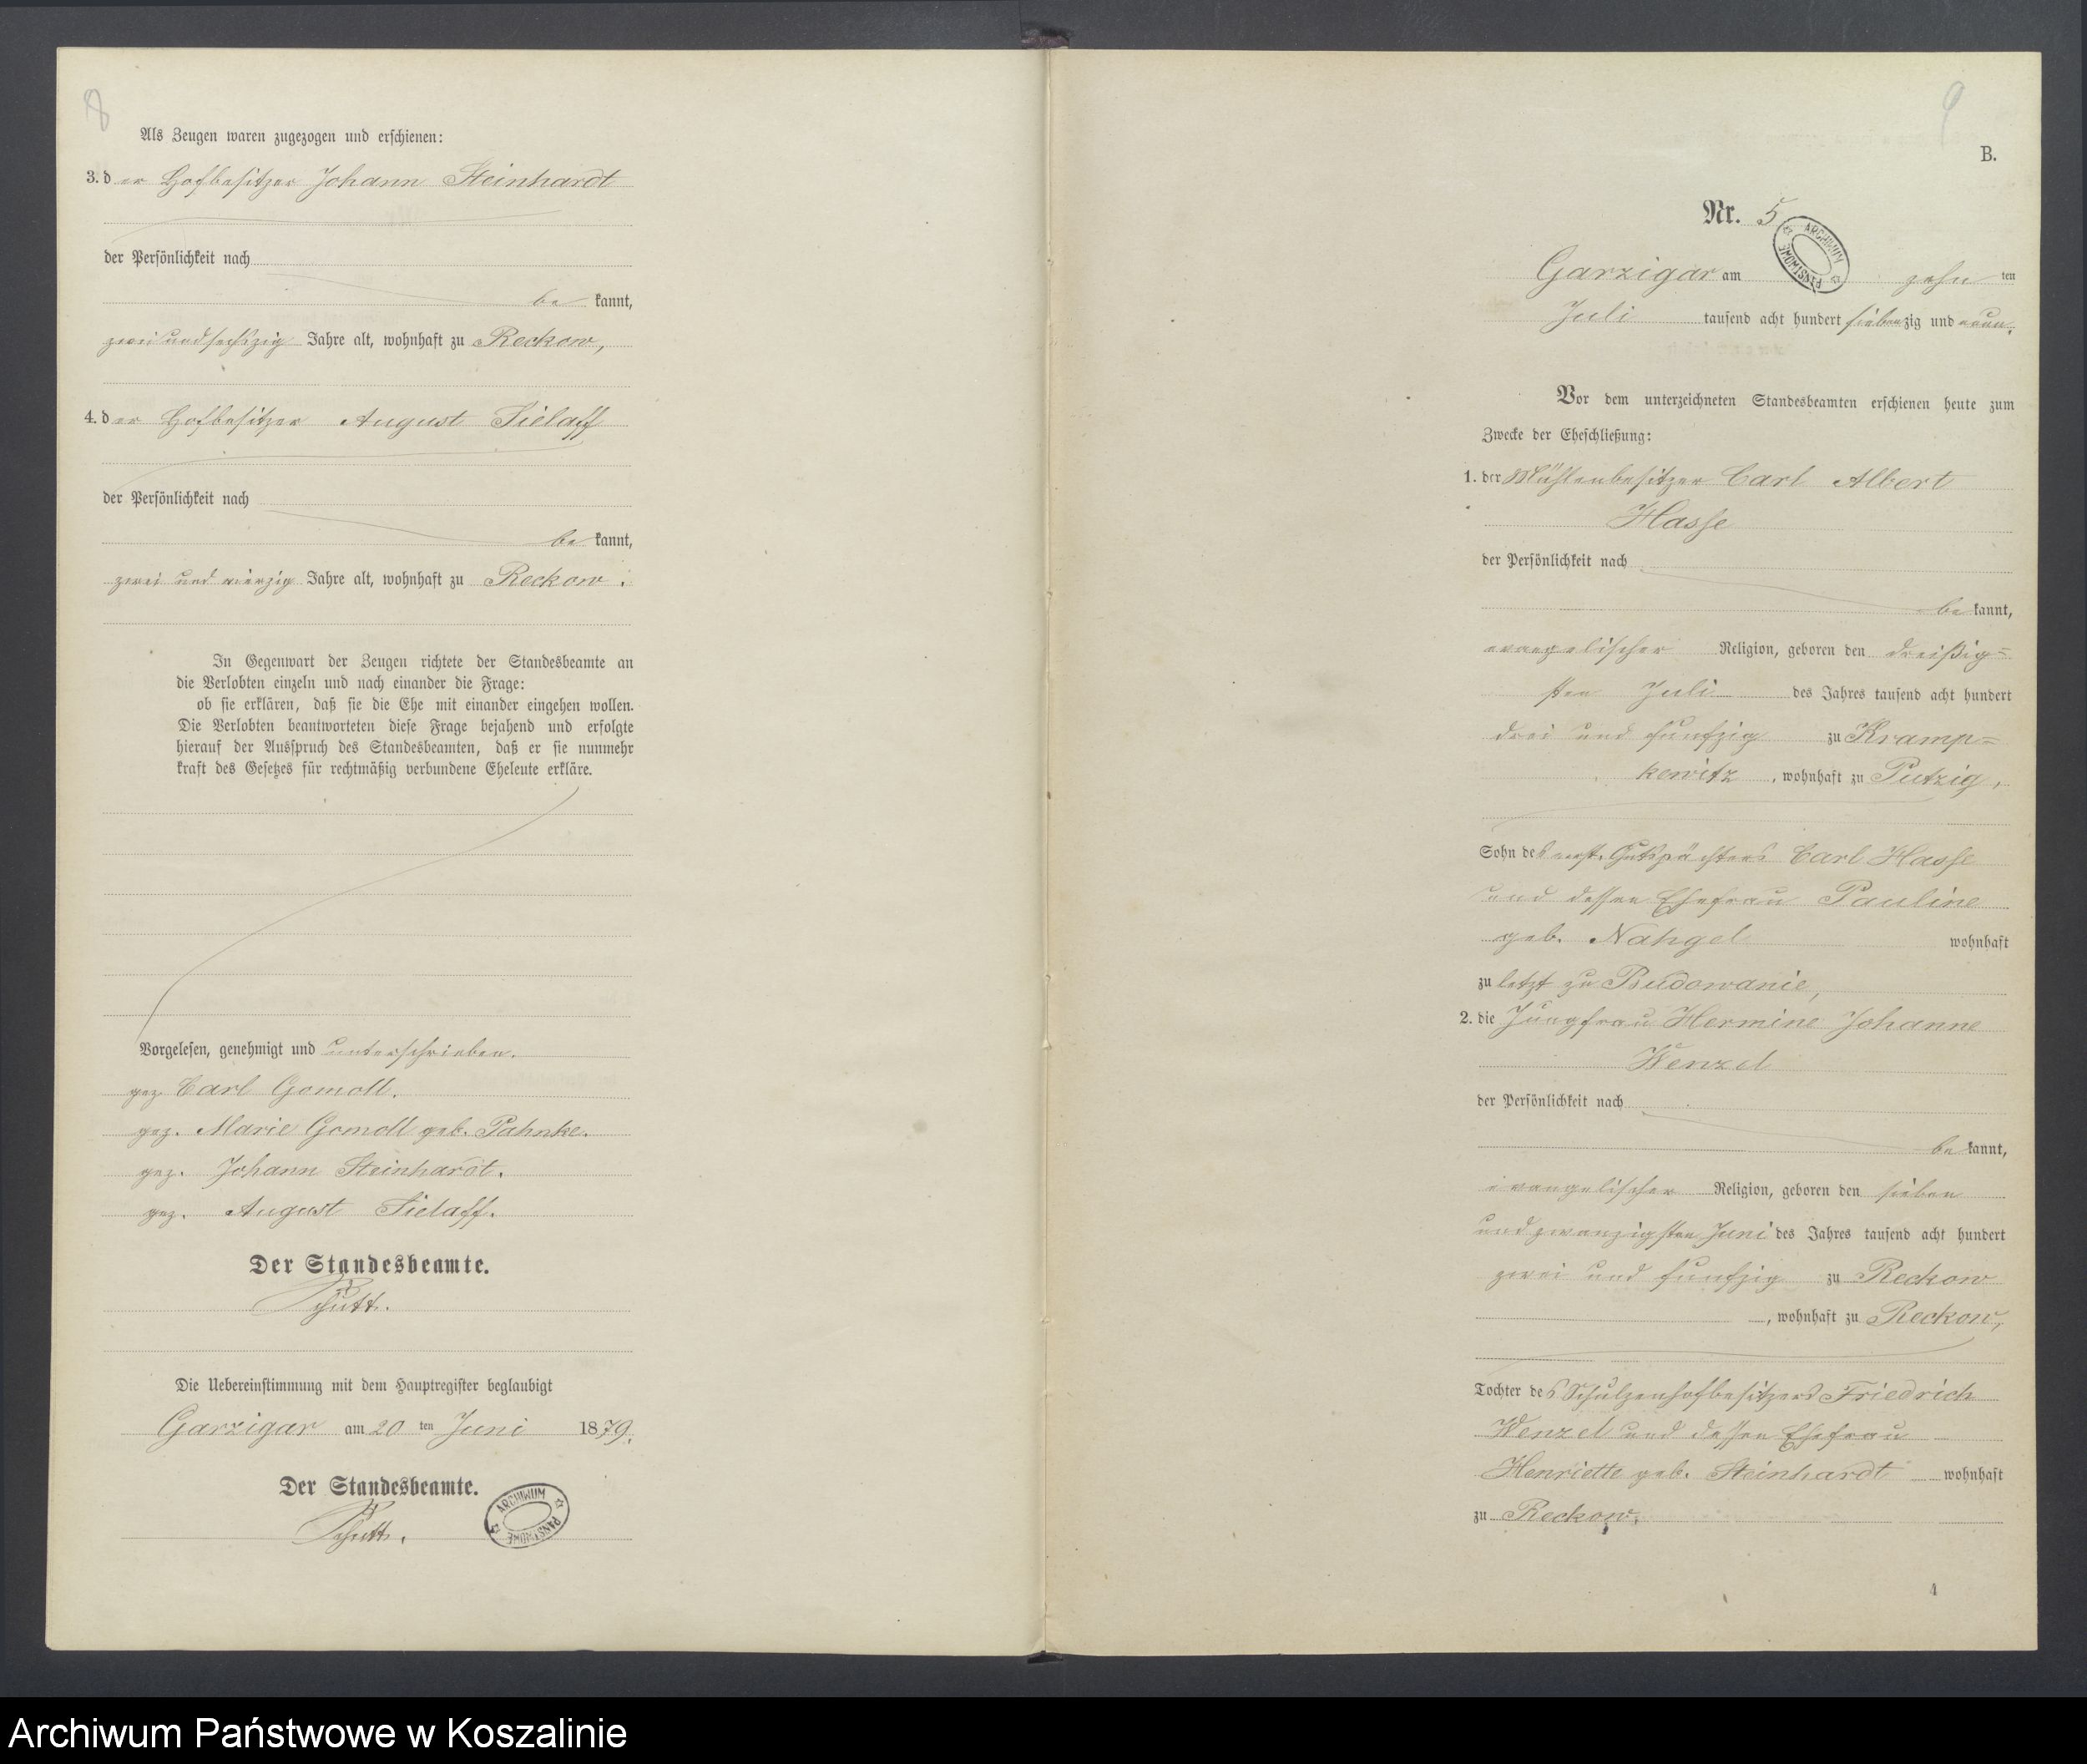 8
Als Zeugen waren zugezogen und erschienen:
3. der Hofbesitzer Johann Steinhardt
der Persönlichkeit nach
be kannt,
zwei und sechszig Jahre alt, wohnhaft zu Reckow,
4. der Hofbesitzer August Sielaff
der Persönlichkeit nach
be kannt,
zwei und vierzig Jahre alt, wohnhaft zu Reckow.
In Gegenwart der Zeugen richtete der Standesbeamte an
die Verlobten einzeln und nach einander die Frage:
ob sie erklären, daß sie die Ehe mit einander eingehen wollen.
Die Verlobten beantworteten diese Frage bejahend und erfolgte
hierauf der Ausspruch des Standesbeamten, daß er sie nunmehr
kraft des Gesetzes für rechtmäßig verbundene Eheleute erkläre.
Vorgelesen, genehmigt und unterschrieben.
gez. Carl Gomoll.
gez. Marie Gomoll geb. Pahnke.
gez. Johann Steinhardt.
gez. August Sielaff.
Der Standesbeamte.
Schütt.
Die Uebereinstimmung mit dem Hauptregister beglaubigt
Garzigar am 20 ten Juni 1879.
Der Standesbeamte.
Schütt.
ARCHIWUM PAŃSTWOWE
9
B.
Nr. 5
ARCHIWUM PAŃSTWOWE
Garzigar am zehn ten
Juli tausend acht hundert siebenzig und neun.
Vor dem unterzeichneten Standesbeamten erschienen heute zum
Zwecke der Eheschließung:
1. der Mühlenbesitzer Carl Albert
Hasse
der Persönlichkeit nach
be kannt,
evangelischer Religion, geboren den dreißig=
sten Juli des Jahres tausend acht hundert
drei und funfzig zu Kramp=
kewitz, wohnhaft zu Putzig,
Sohn des verst. Gutspächters Carl Hasse
und dessen Ehefrau Pauline
geb. Nahgel wohnhaft
zu letzt zu Budowanie,
2. die Jungfrau Hermine Johanne
Wenzel
der Persönlichkeit nach
be kannt,
evangelischer Religion, geboren den sieben
und zwanzigsten Juni des Jahres tausend acht hundert
zwei und funfzig zu Reckow
, wohnhaft zu Reckow,
Tochter des Schulzenhofbesitzers Friedrich
Wenzel und dessen Ehefrau
Henriette geb. Steinhardt wohnhaft
zu Reckow.
1
Archiwum Państwowe w Koszalinie